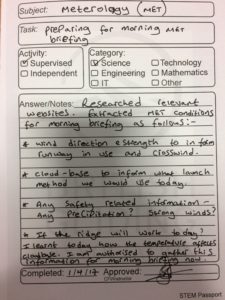 Subject: Meterology (MET)
Task: preparing for morning MET
briefing
Activity:
Supervised
Independent
Category:
Science
Engineering
IT
Technology
Mathematics
Other
Answer/Notes: Researched relevant
websites. Extracted MET conditions
for morning briefing as follows:-
* wind direction & strength to inform
runway in use and crosswind.
* cloud-base to inform what launch
method we would use today.
* Any safety related information -
Any Precipitation? Strong winds?
* If the ridge will work today?
I learnt today how the temperature affects
cloudbase. I am authorised to gather this
information for morning briefing now
Completed: 1/4/17 Approved:
STEM Passport